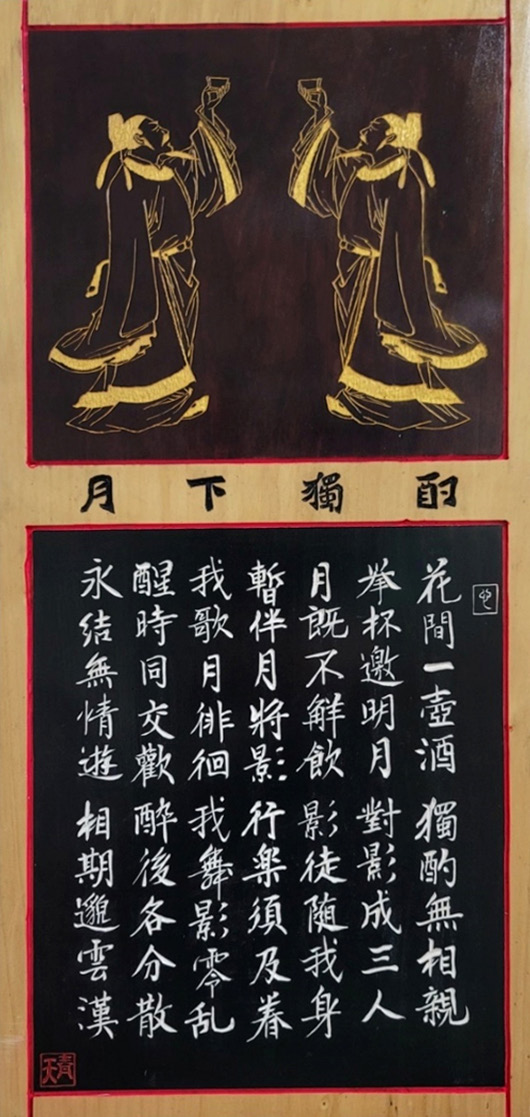 月下獨酌
花間一壺酒 獨酌無相親
举杯邀明月 對影成三人
月既不解飲 影徒随我身
暫伴月將影 行楽須及春
我歌月徘徊 我舞影零乱
醒時同交歡 醉後各分散
永結無情遊 相期邈雲漢
青天